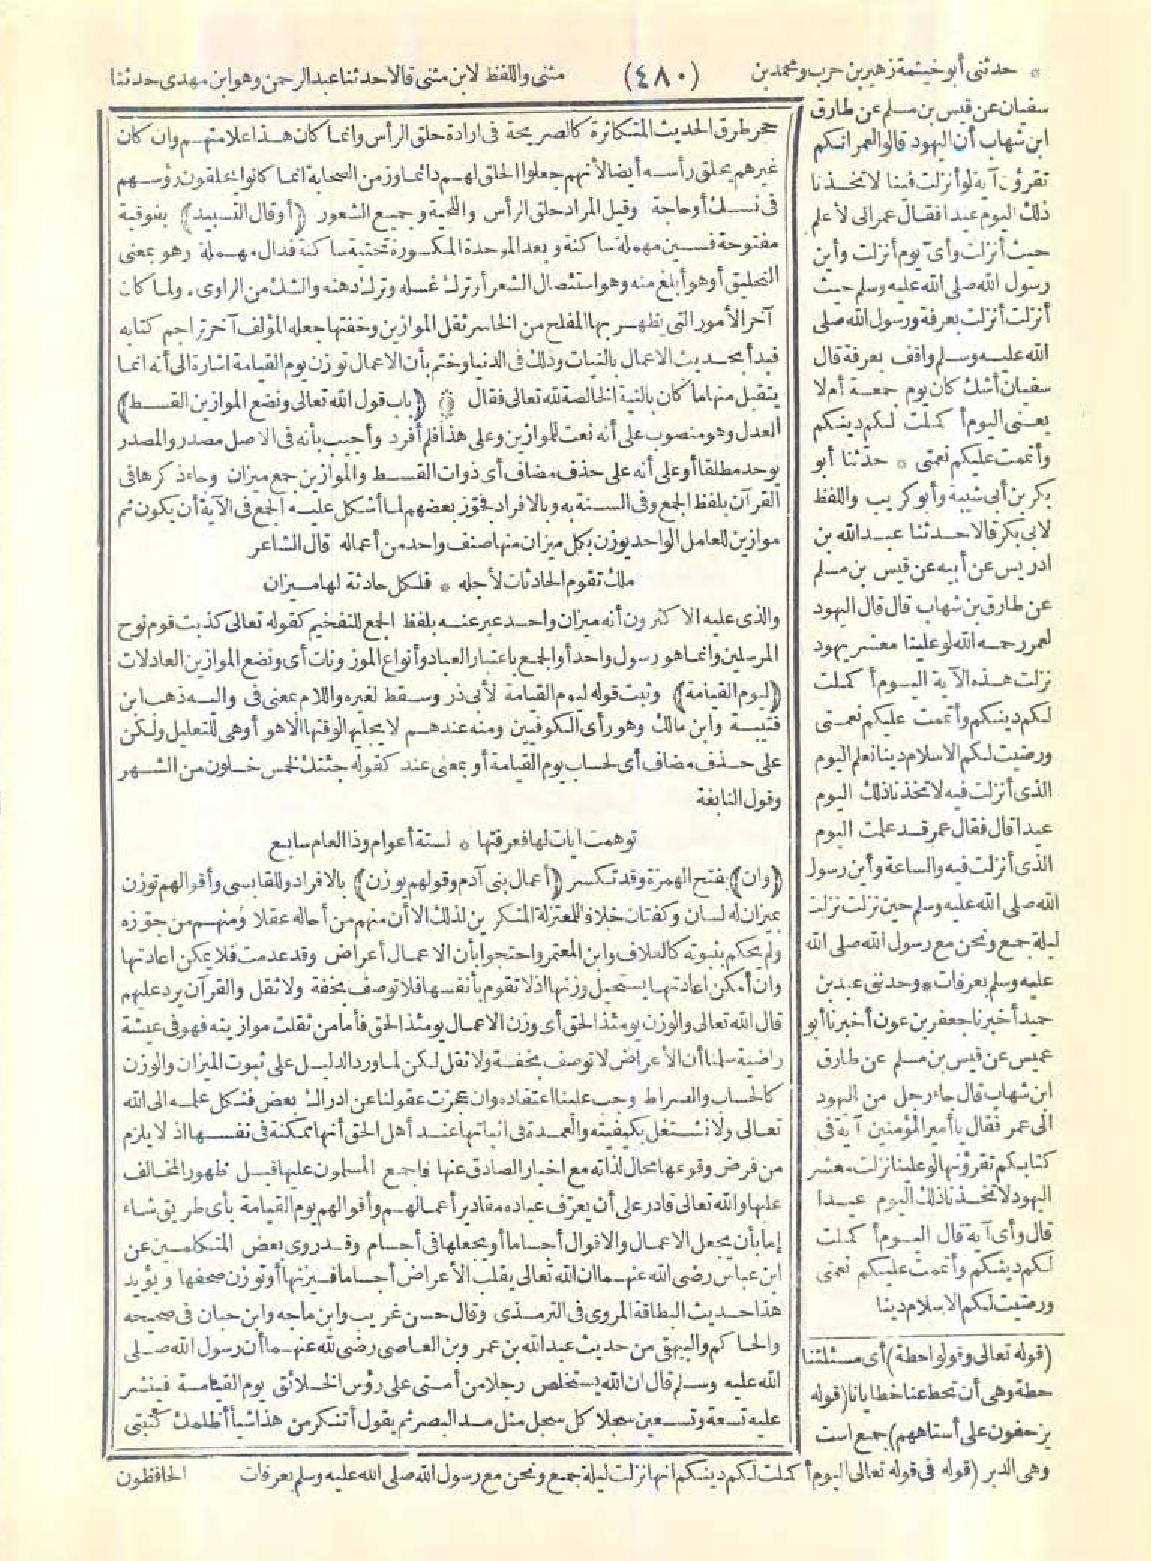 * حدثنى أبو خيثمة زهير بن حرب ومحمد بن
(٤٨٠)
مثنى واللفظ لابن مثنى قالا حدثنا عبد الرحمن وهو ابن مهدى حدثنا
سفيان عن قيس بن مسلم عن طارق
ابن شهاب أن اليهود قالوا لعمر انكم
تقرؤن آية لو أنزلت فينا لاتخذنا
ذلك اليوم عيدا فقال عمر انى لأعلم
حيث أنزلت وأى يوم أنزلت وأين
رسول الله صلى الله عليه وسلم حيث
أنزلت أنزلت بعرفة ورسول الله صلى
الله عليه وسلم واقف بعرفة قال
سفيان أشك كان يوم جمعة أم لا
يعنى اليوم أكملت لكم دينكم
وأتممت عليكم نعمتى * حدثنا أبو
بكر بن أبى شيبة وأبو كريب واللفظ
لابى بكر قالا حدثنا عبد الله بن
ادريس عن أبيه عن قيس بن مسلم
عن طارق بن شهاب قال قال اليهود
لعمر رحمه الله لو علينا معشر يهود
نزلت هذه الآية اليوم أكملت
لكم دينكم وأتممت عليكم نعمتى
ورضيت لكم الاسلام دينا نعلم اليوم
الذى أنزلت فيه لاتخذنا ذلك اليوم
عيدا قال فقال عمر قد علمت اليوم
الذى أنزلت فيه والساعة وأين رسول
الله صلى الله عليه وسلم حين نزلت نزلت
ليلة جمع ونحن مع رسول الله صلى الله
عليه وسلم بعرفات * وحدثنى عبد بن
حميد أخبرنا جعفر بن عون أخبرنا أبو
عميس عن قيس بن مسلم عن طارق
ابن شهاب قال جاء رجل من اليهود
الى عمر فقال يا أمير المؤمنين آية فى
كتابكم تقرؤنها لو علينا نزلت معشر
اليهود لاتخذنا ذلك اليوم عيدا
قال وأى آية قال اليوم أكملت
لكم دينكم وأتممت عليكم نعمتى
ورضيت لكم الاسلام دينا
(قوله تعالى وقولوا حطة) أى مسئلتنا
حطة وهى أن تحط عنا خطايانا (قوله
يزحفون على أستاههم) جمع است
حجر طرق الحديث المتكاثرة كالصريحة فى ارادة حلق الرأس وانما كان هذا علامتهم وان كان
غيرهم يحلق رأسه أيضا لأنهم جعلوا الحلق لهم دائما وزمن الصحابة انما كانوا يحلقون رؤسهم
فى نسك أو حاجة وقيل المراد حلق الرأس واللحية وجميع الشعور (أو قال التسبيد) بفوقية
مفتوحة فسين مهملة ساكنة وبعد الموحدة المكسورة تحتية ساكنة فدال مهملة وهو بمعنى
التحليق أو هو أبلغ منه وهو استئصال الشعر أو ترك غسله وترك دهنه والشك من الراوى. ولما كان
آخر الأمور التى يظهر بها المفلح من الخاسر ثقل الموازين وخفتها جعله المؤلف آخر تراجم كتابه
فبدأ بحديث الاعمال بالنيات وذلك فى الدنيا وختم بأن الاعمال توزن يوم القيامة اشارة الى أنه انما
يتقبل منها ما كان بالنية الخالصة لله تعالى فقال (باب قول الله تعالى ونضع الموازين القسط)
العدل وهو منصوب على أنه نعت للموازين وعلى هذا فلم أفرد وأجيب بأنه فى الاصل مصدر والمصدر
يوحد مطلقا أو على أنه على حذف مضاف أى ذوات القسط والموازين جمع ميزان وجاء ذكرها فى
القرآن بلفظ الجمع وفى السنة به وبالافراد فجوّز بعضهم لما أشكل عليه الجمع فى الآية أن يكون ثم
موازين للعامل الواحد يوزن بكل ميزان منها صنف واحد من أعماله قال الشاعر
ملك تقوم الحادثات لأجله * فلكل حادثة لها ميزان
والذى عليه الاكثرون أنه ميزان واحد عبر عنه بلفظ الجمع للتفخيم كقوله تعالى كذبت قوم نوح
المرسلين وانما هو رسول واحد أو الجمع باعتبار العباد وأنواع الموزونات أى ونضع الموازين العادلات
(ليوم القيامة) وثبت قوله ليوم القيامة لأبى ذر وسقط لغيره واللام بمعنى فى واليه ذهب ابن
قتيبة وابن مالك وهو رأى الكوفيين ومنه عندهم لا يجليها لوقتها الا هو أو هى للتعليل ولكن
على حذف مضاف أى لحساب يوم القيامة أو بمعنى عند كقوله جئتك لخمس خلون من الشهر
وقول النابغة
توهمت ايات لها فعرفتها * لستة أعوام وذا العام سابع
(وان) بفتح الهمزة وقد تكسر (أعمال بنى آدم وقولهم يوزن) بالافراد وللقابسى وأقوالهم توزن
بميزان له لسان وكفتان خلافا للمعتزلة المنكرين لذلك الا أن منهم من أحاله عقلا ومنهم من جوّزه
ولم يحكم بثبوته كالعلاف وابن المعتمر واحتجوا بأن الاعمال أعراض وقد عدمت فلا يمكن اعادتها
وان أمكن اعادتها يستحيل وزنها اذ لا تقوم بأنفسها فلا توصف بخفة ولا ثقل والقرآن يرد عليهم
قال الله تعالى والوزن يومئذ الحق أى وزن الاعمال يومئذ الحق فأما من ثقلت موازينه فهو فى عيشة
راضية سلمنا أن الأعراض لا توصف بخفة ولا ثقل لكن لما ورد الدليل على ثبوت الميزان والوزن
كالحساب والصراط وجب علينا اعتقاده وان عجزت عقولنا عن ادراك بعض فنكل علمه الى الله
تعالى ولا نشتغل بكيفيته والعمدة فى اثباتها عند أهل الحق أنها ممكنة فى نفسها اذ لا يلزم
من فرض وقوعها محال لذاته مع اخبار الصادق عنها فاجمع المسلمون عليها قبل ظهور المخالف
عليها والله تعالى قادر على أن يعرّف عباده مقادير أعمالهم وأقوالهم يوم القيامة بأى طريق شاء
إما بأن يجعل الاعمال والاقوال أجساما أو يجعلها فى أجسام وقد روى بعض المتكلمين عن
ابن عباس رضى الله عنهما ان الله تعالى يقلب الأعراض أجساما فيزنها أو توزن صحفها ويؤيد
هذا حديث البطاقة المروى فى الترمذى وقال حسن غريب وابن ماجه وابن حبان فى صحيحه
والحاكم والبيهقى من حديث عبد الله بن عمر وبن العاصى رضى الله عنهما أن رسول الله صلى
الله عليه وسلم قال ان الله يستخلص رجلا من أمتى على رؤس الخلائق يوم القيامة فينشر
عليه تسعة وتسعين سجلا كل سجل مثل مد البصر ثم يقول أتنكر من هذا شيأ أظلمك كتبتى
وهى الدبر (قوله فى قوله تعالى اليوم أكملت لكم دينكم انها نزلت ليلة جمع ونحن مع رسول الله صلى الله عليه وسلم بعرفات
الحافظون